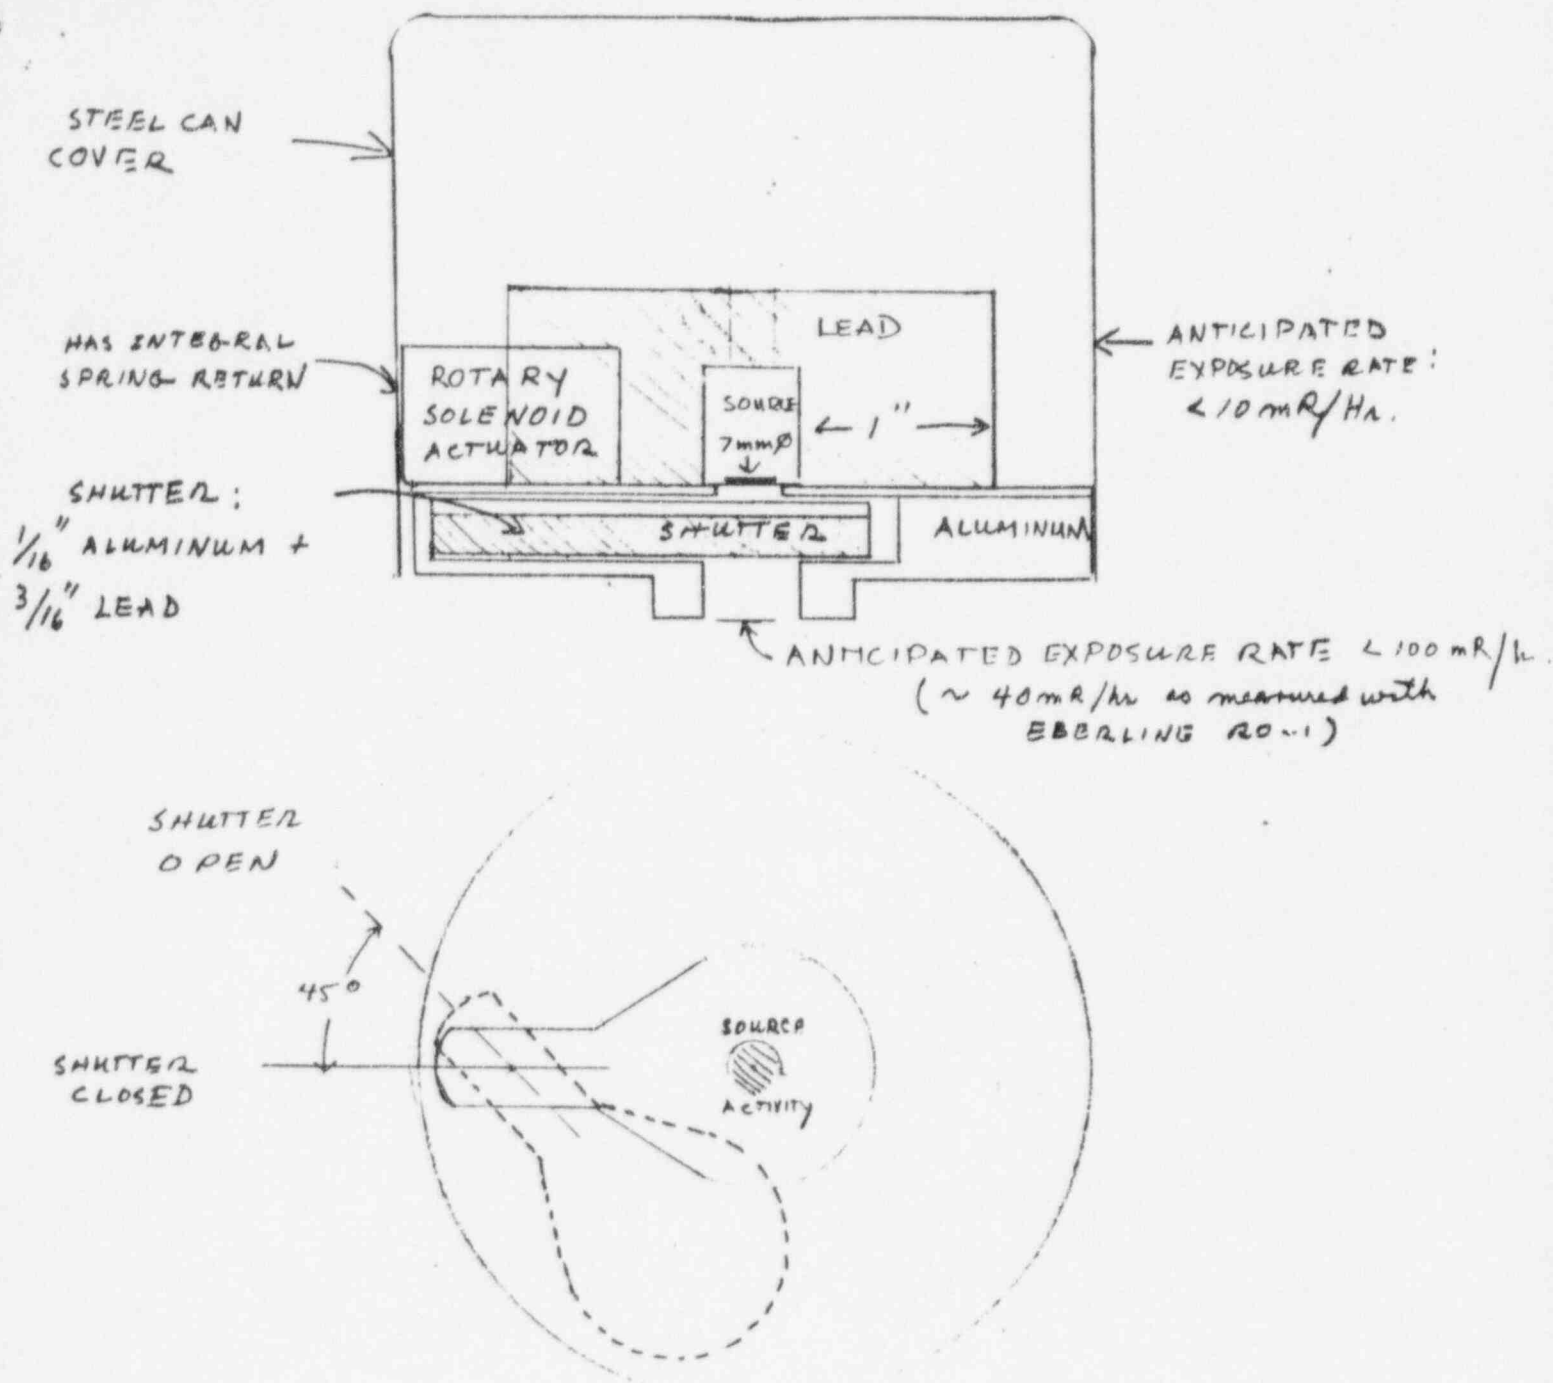 STEEL CAN
COVER
HAS INTEGRAL
SPRING RETURN
ROTARY
SOLENOID
ACTUATOR
LEAD
SOURCE
7mmØ
1"
ANTICIPATED
EXPOSURE RATE:
<10mR/Hr.
SHUTTER:
1/16" ALUMINUM +
3/16" LEAD
SHUTTER
ALUMINUM
ANTICIPATED EXPOSURE RATE <100 mR/h.
(~ 40mR/hr as measured with
EBERLINE RO-1)
SHUTTER
OPEN
45°
SHUTTER
CLOSED
SOURCE
ACTIVITY